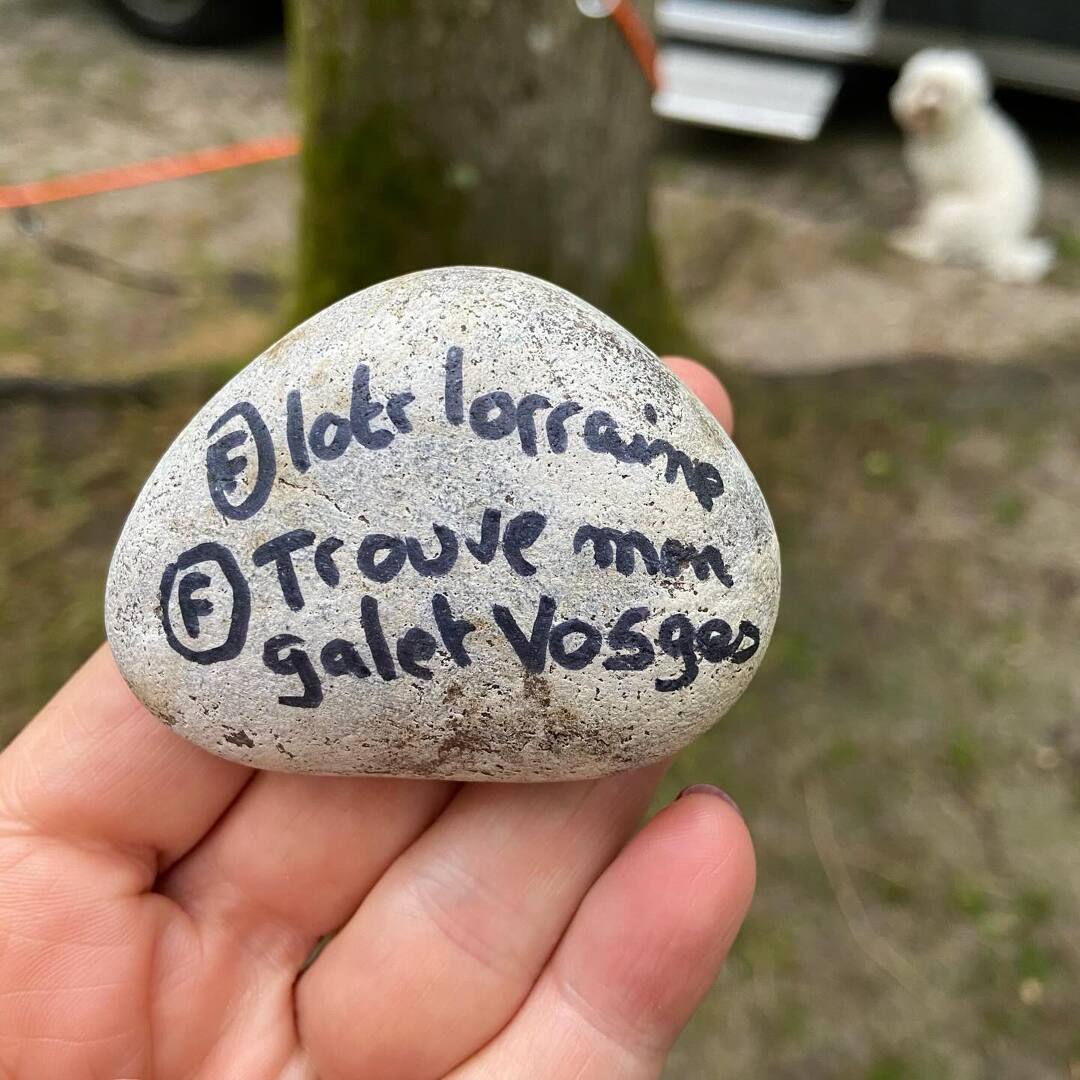 F lotr lorraine
F Trouve mon
galet Vosges